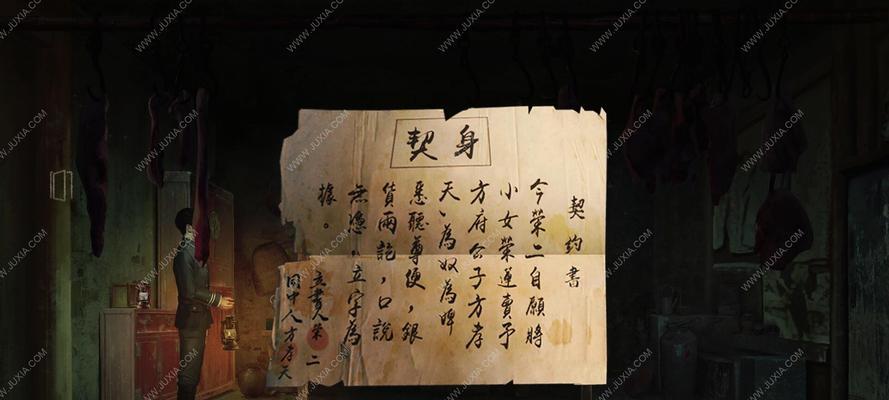 身契
契約書
今榮二自願將
小女榮蓮賣予
方府公子方孝
天、為奴為婢
悉聽尊便,銀
貨兩訖,口說
無憑。立字為
據。
立書人榮二
同中人方孝天
WWW.JUXIA.COM